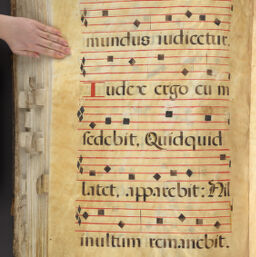 mundus iudicetur.
Iudex ergo cu m
sedebit, Quidquid
latet, apparebit: Nil
inultum remanebit.